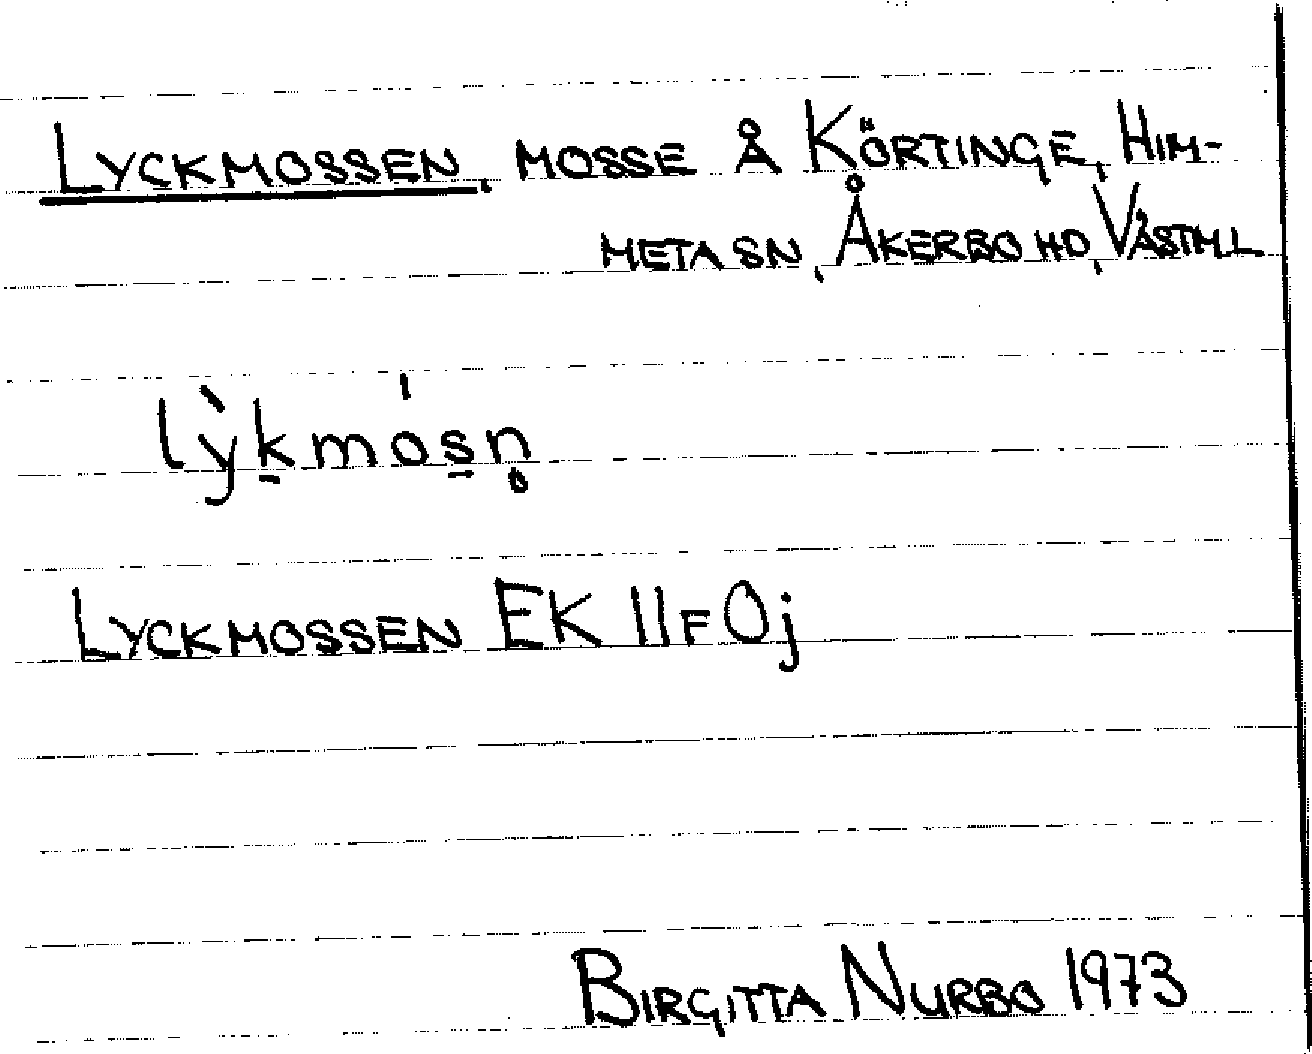 LYCKMOSSEN, MOSSE Å KÖRTINGE, HIM-
META SN, ÅKERBO HD, VÄSTM.L
lỳk̠mós̠n̥
LYCKMOSSEN EK 11F0j
BIRGITTA NURBO 1973